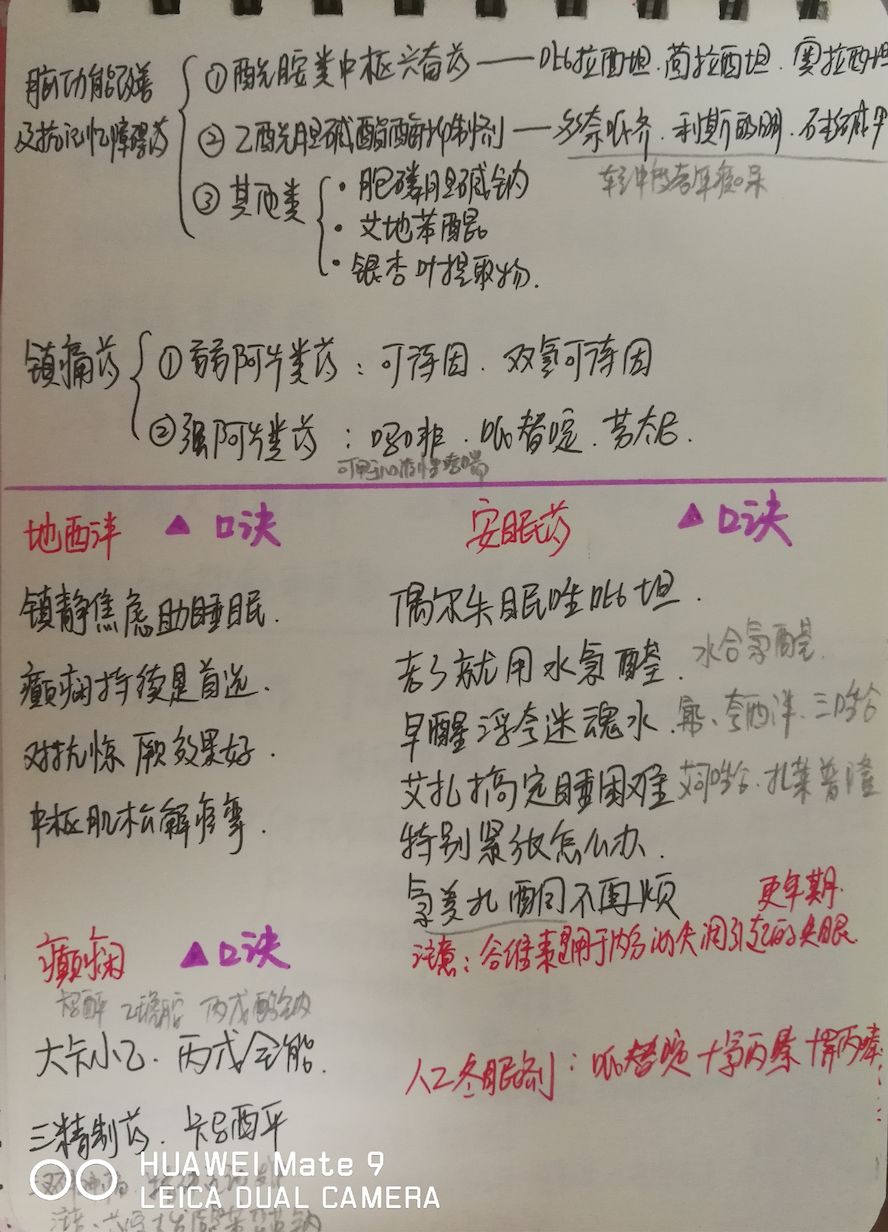 脑功能改善
及抗记忆障碍药
① 酰胺类中枢兴奋药——吡拉西坦.茴拉西坦.奥拉西坦
② 乙酰胆碱酯酶抑制剂——多奈哌齐.利斯的明.石杉碱甲
轻中度老年痴呆
③ 其他类
· 胞磷胆碱钠
· 艾地苯醌
· 银杏叶提取物.
镇痛药
① 弱阿片类药：可待因.双氢可待因
② 强阿片类药：吗啡.哌替啶.芬太尼.
可用于心源性哮喘
地西泮 ▲ 口诀
镇静焦虑助睡眠.
癫痫持续是首选.
对抗惊厥效果好.
中枢肌松解痉挛.
安眠药 ▲ 口诀
偶尔失眠唑吡坦.
老了就用水氯醛.水合氯醛.
早醒浮夸迷魂水.氟、夸西泮.三唑仑
艾扎搞定睡困难 艾司唑仑.扎莱普隆
特别紧张怎么办.
氯美扎酮不再烦
更年期.
注意：谷维素适用于内分泌失调引起的失眠
癫痫 ▲ 口诀
乙琥胺 丙戊酸钠
大卡小乙.丙戊全能.
三精制药.卡马西平
人工冬眠合剂：哌替啶+异丙嗪+氯丙嗪
HUAWEI Mate 9
LEICA DUAL CAMERA